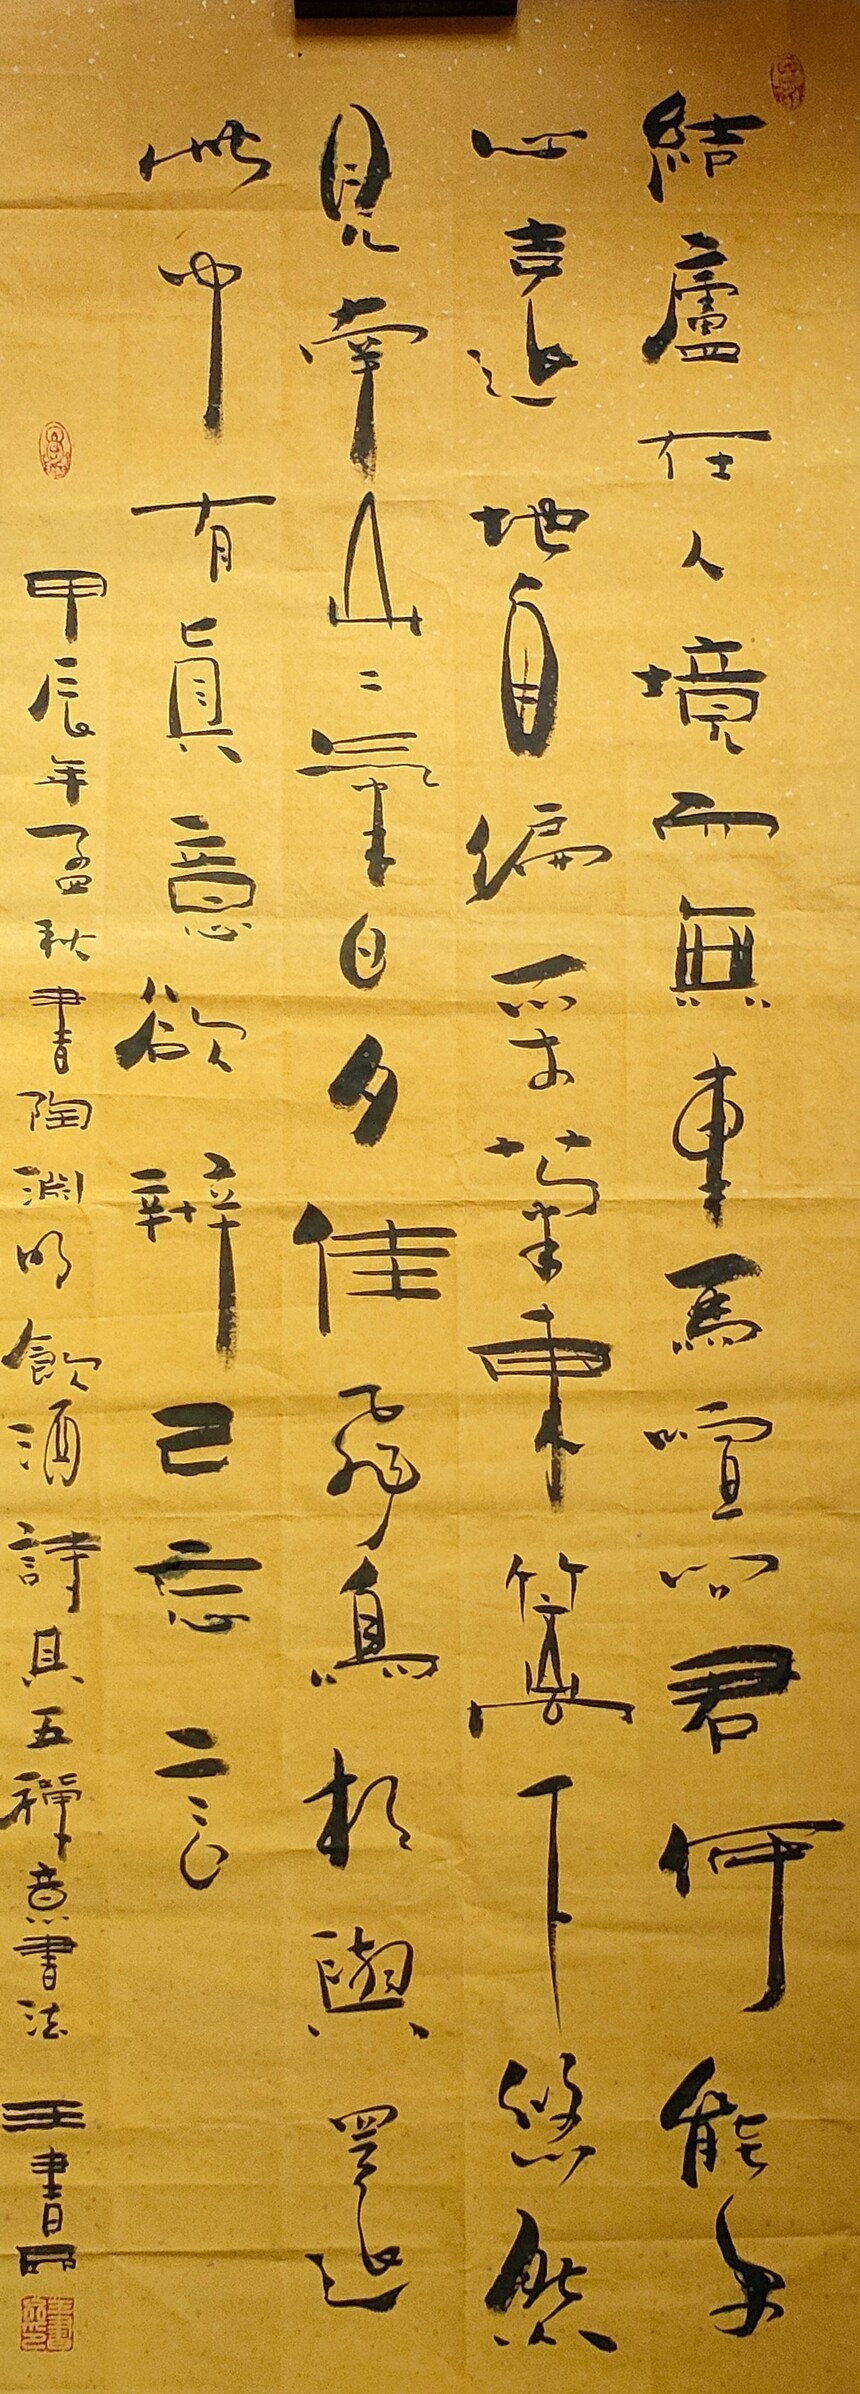 結廬在人境而無車馬喧問君何能尔
心遠地自偏采菊東籬下悠然
見南山〻氣日夕佳飛鳥相與還
此中有眞意欲辨已忘言
甲辰年孟秋書陶淵明飲酒詩其五禪意書法 王書